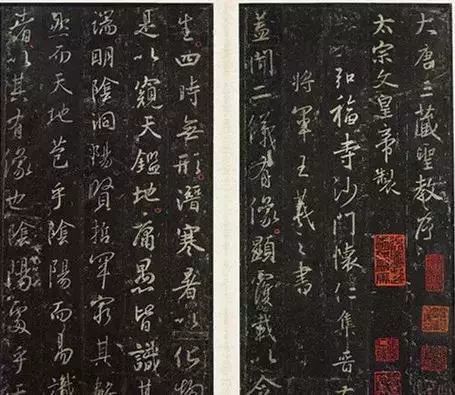 大唐三藏聖教序
太宗文皇帝製
弘福寺沙門懷仁集晉
將軍王羲之書
盖聞二儀有像顯覆載以含
生四時無形潛寒暑以化物
是以窺天鑑地庸愚皆識其
端明陰洞陽賢哲罕窮其
然而天地苞乎陰陽而易識
者以其有像也陰陽處乎天